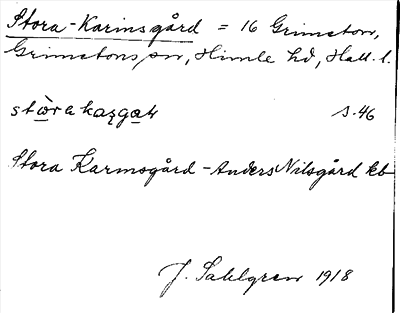 Stora-Karinsgård = 16 Grimeton,
Grimetons sn, Himle hd, Hall. l.
s. 46
Stora Karmsgård - Anders Nilsgård kb
J. Sahlgren 1918